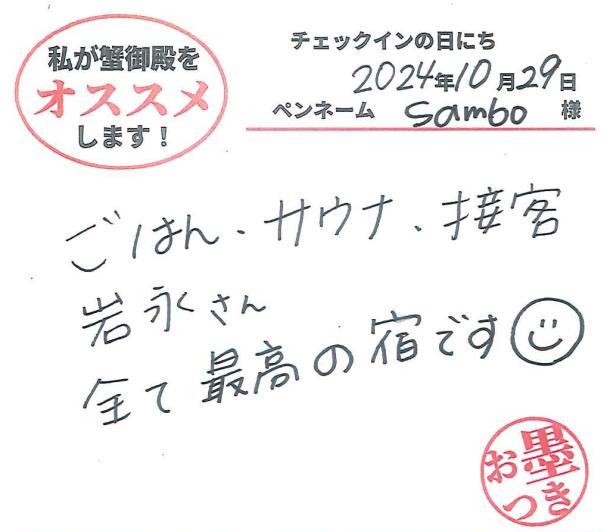 私が蟹御殿を
オススメ
します！
チェックインの日にち
2024年10月29日
ペンネーム sambo 様
ごはん、サウナ、接客
岩永さん
全て最高の宿です
お墨つき